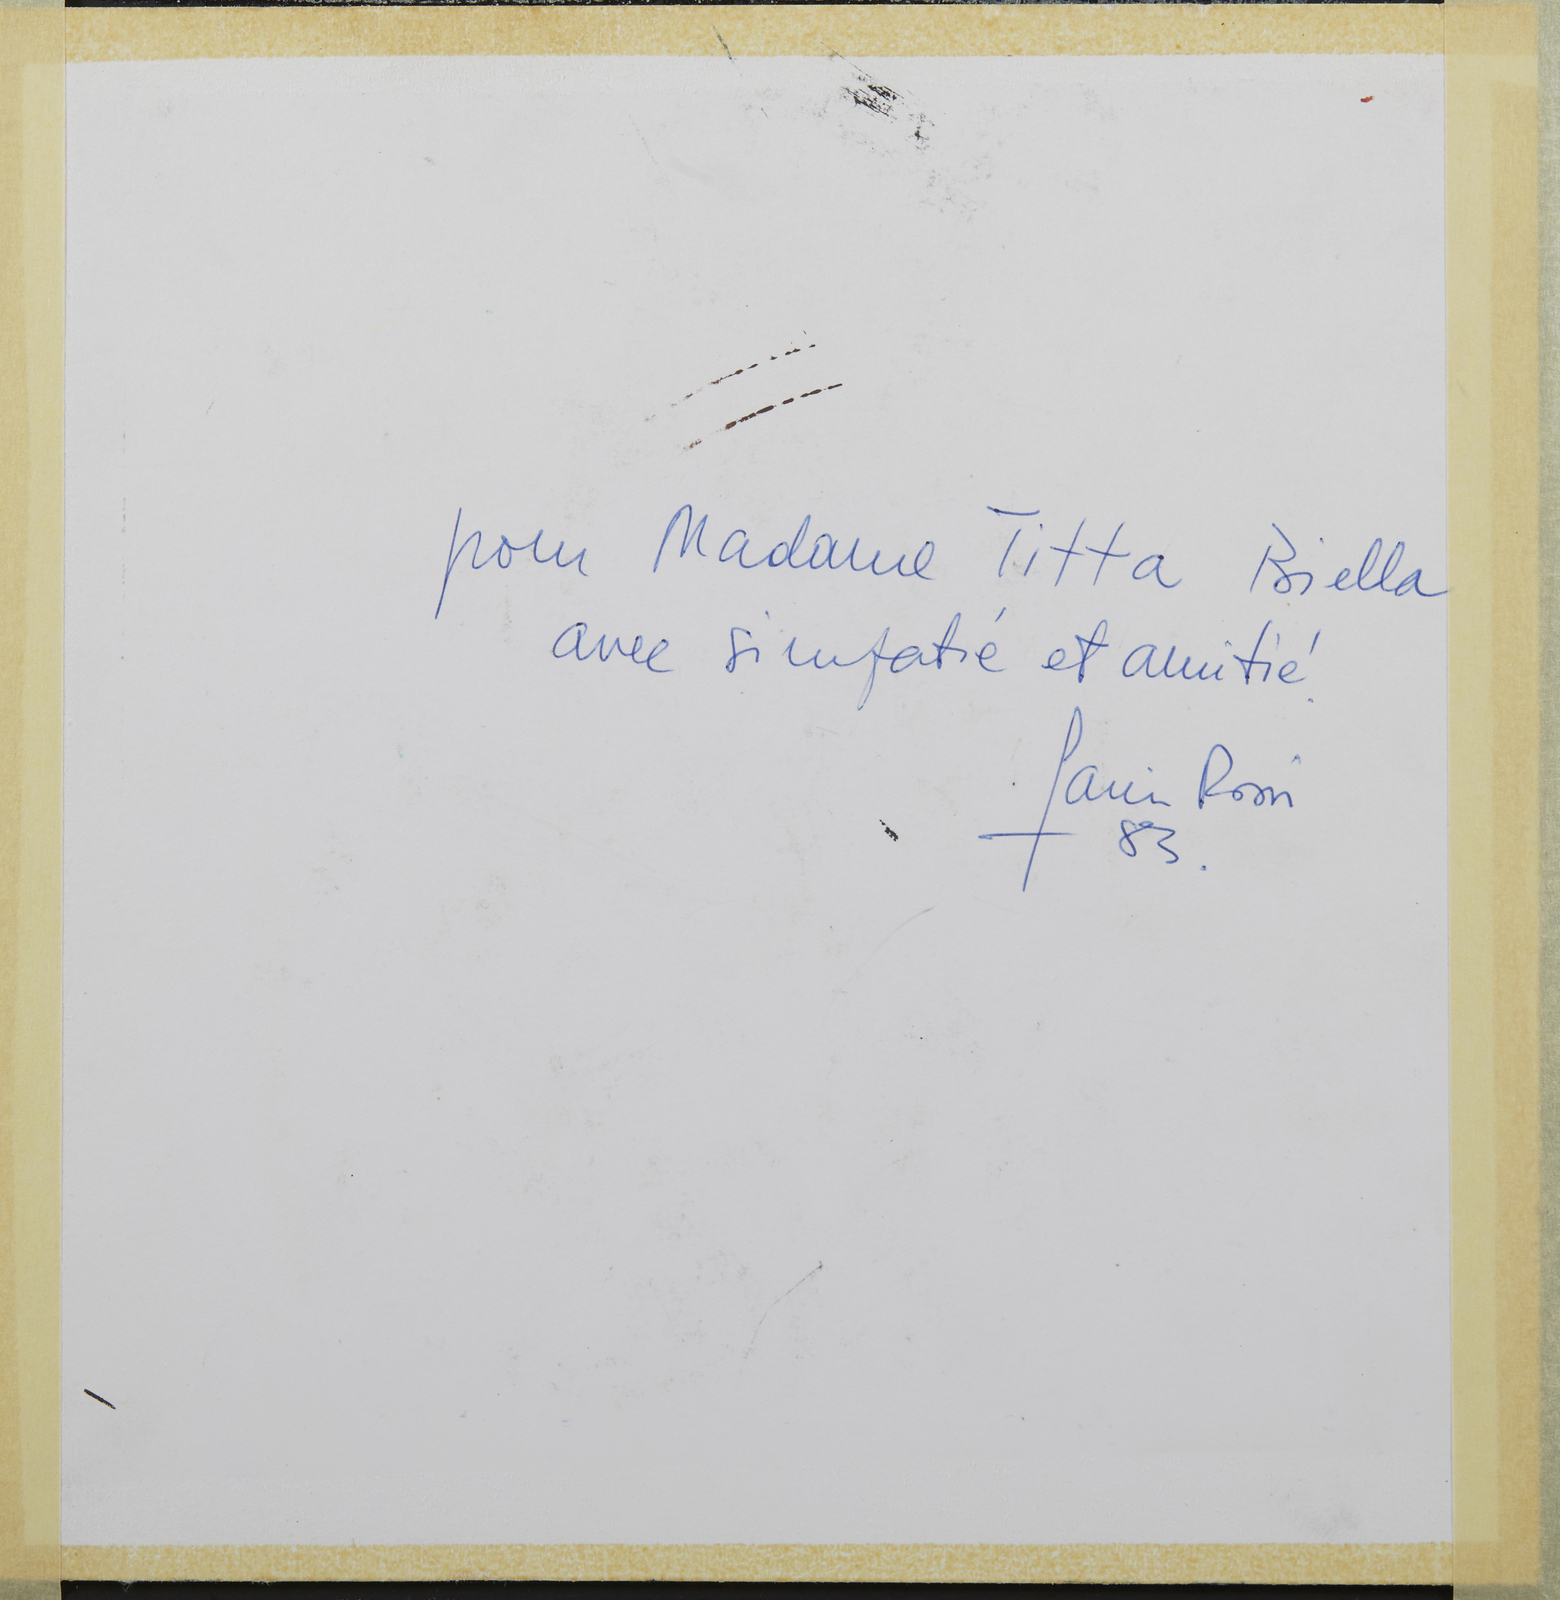 pour Madame Titta Biella
avec simpatié et amitié.
Janin Rossi
83.